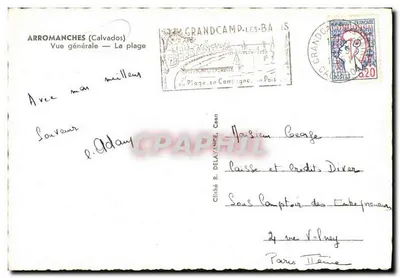 ARROMANCHES (Calvados)
Vue générale — La plage
GRANDCAMP-LES-BAINS
Sa Plage, sa Campagne, ses Bois
GRANDCAMP
0,20
Avec mon meilleur
Souvenir
Cliché R. DELAVARENNE, Caen
Monsieur George
Caisse et Crédits Divers
Sous Comptoir des Entrepreneurs
2 rue Volney
Paris IIème
CPAPHIL.COM